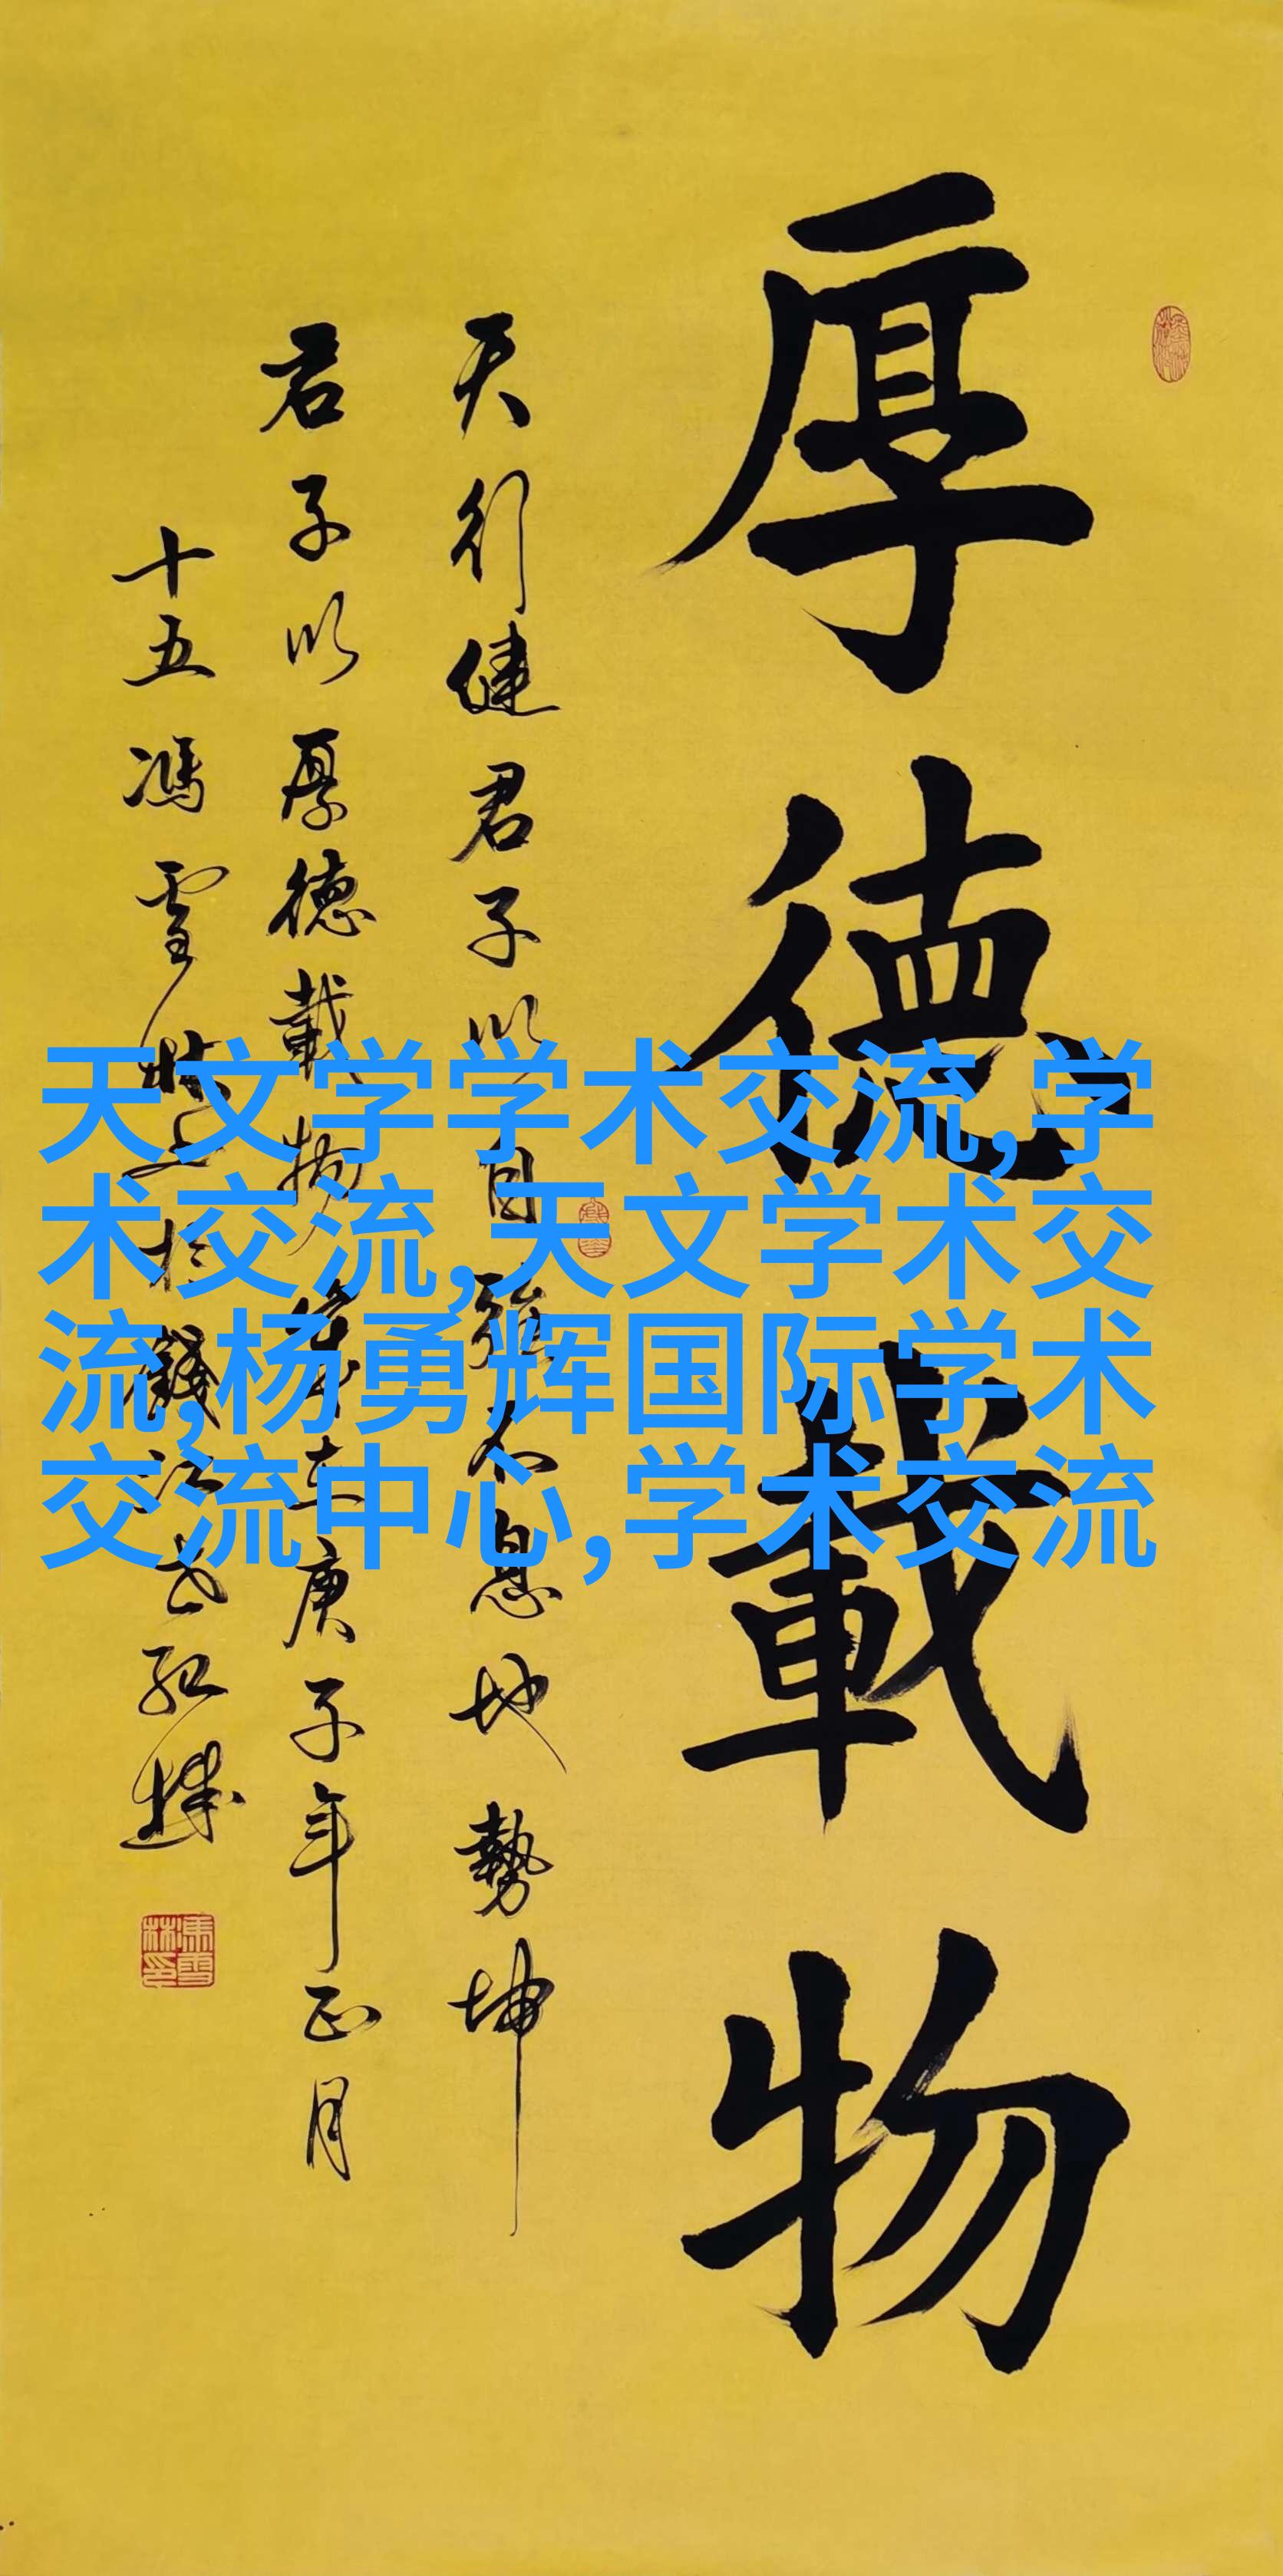 厚德載物
天行健君子以自強不息地勢坤
君子以厚德載物 歲在庚子年正月
十五馮雪林書於錢江
天文学学术交流,学
术交流,天文学术交
流,杨勇辉国际学术
交流中心,学术交流
馮雪林印